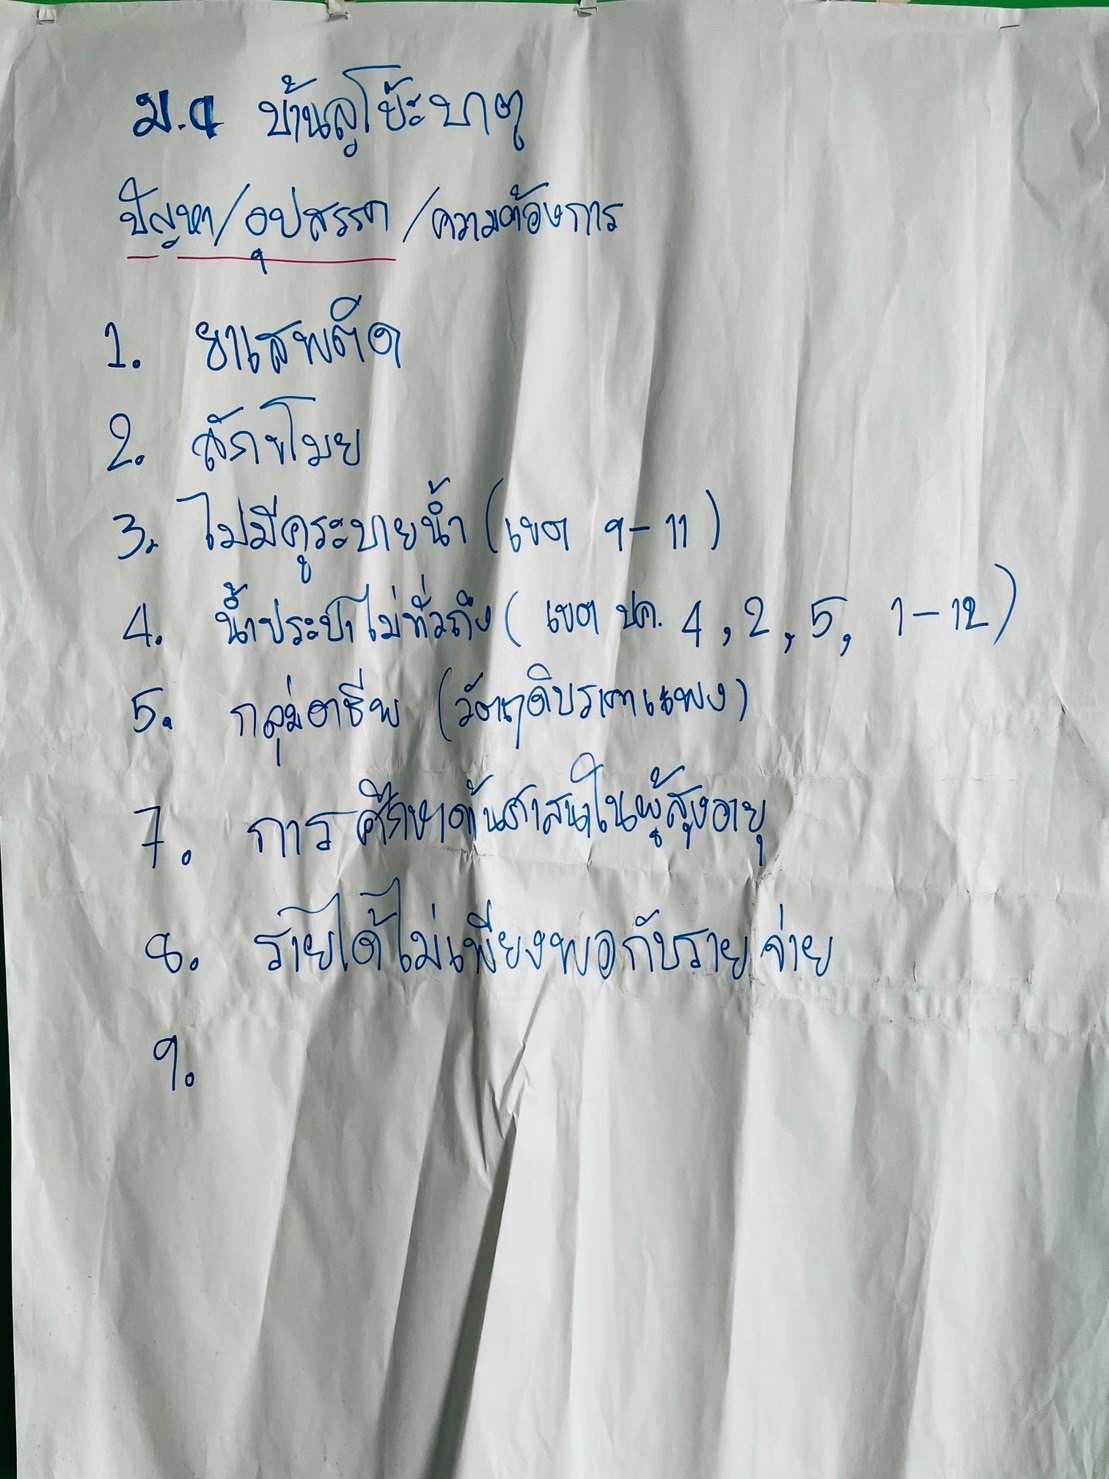 ม.4 บ้านลูโบ๊ะบาตู
ปัญหา/อุปสรรค/ความต้องการ
1. ยาเสพติด
2. ลักขโมย
3. ไม่มีคูระบายน้ำ (เขต 9-11)
4. น้ำประปาไม่ทั่วถึง (เขต ปค. 4, 2, 5, 1-12)
5. กลุ่มอาชีพ (วัตถุดิบราคาแพง)
7. การศึกษาด้านศาสนาในผู้สูงอายุ
8. รายได้ไม่เพียงพอกับรายจ่าย
9.